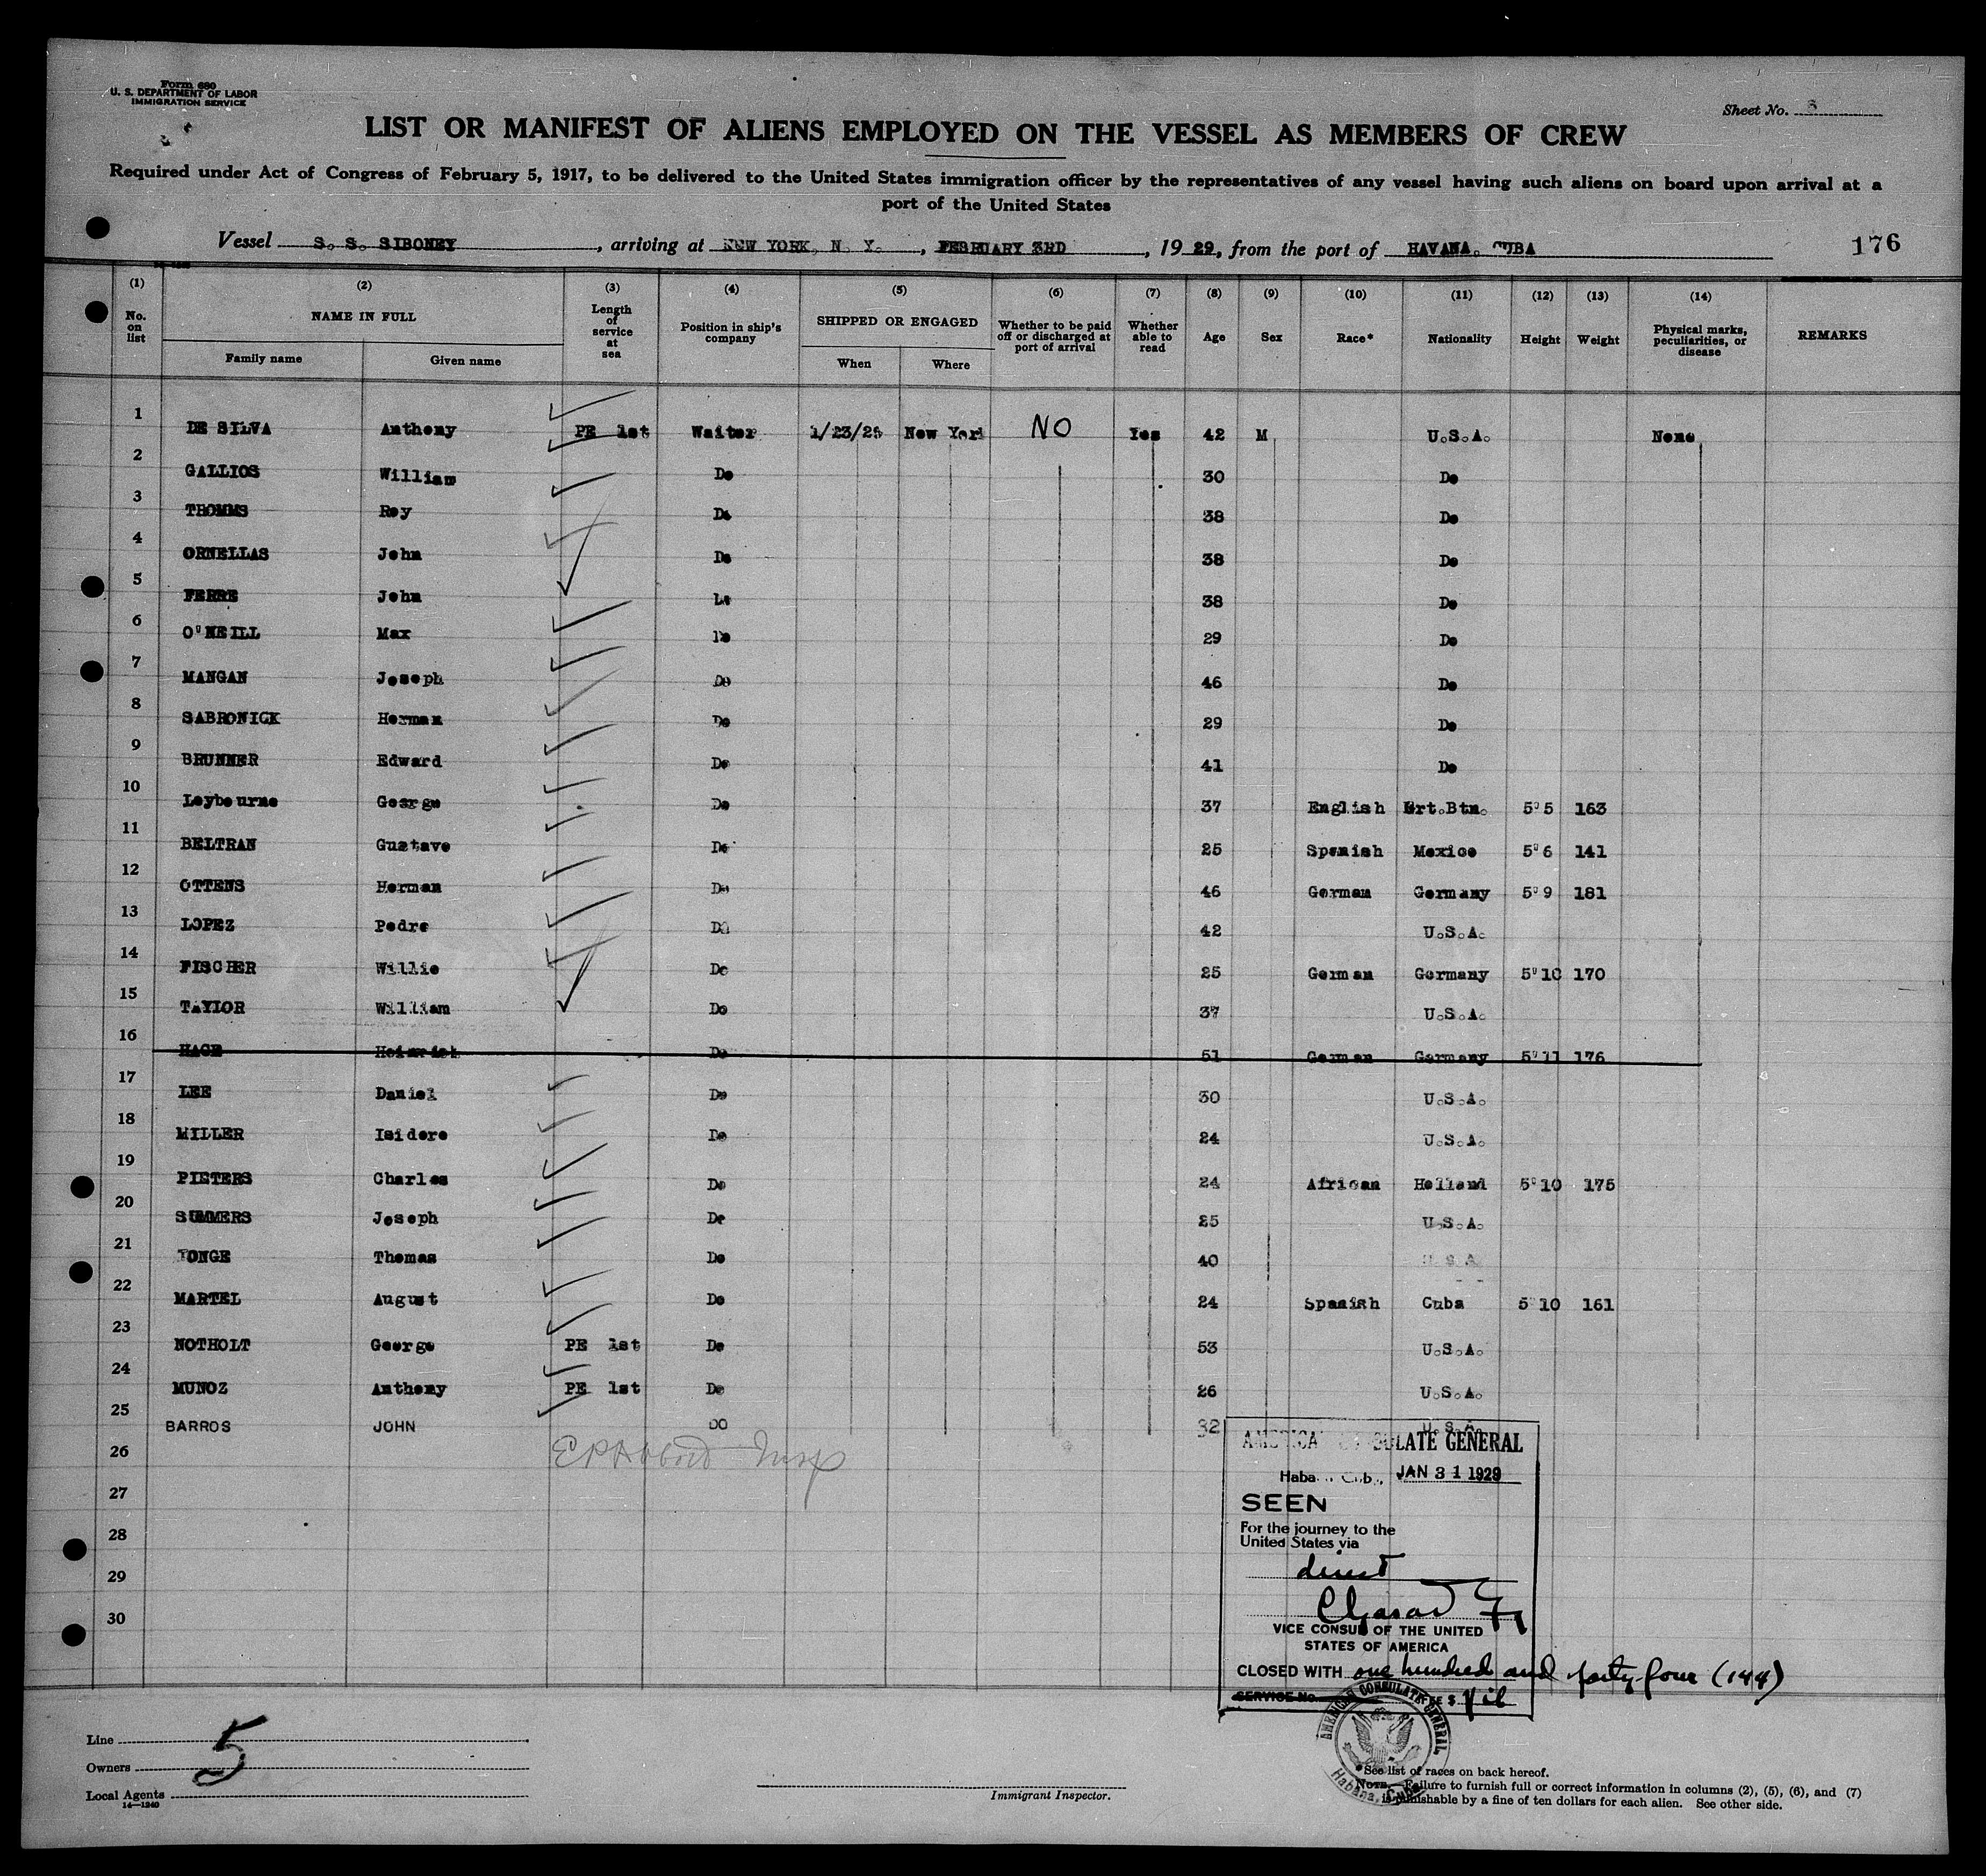 Form 680
U. S. DEPARTMENT OF LABOR
IMMIGRATION SERVICE
Sheet No.
LIST OR MANIFEST OF ALIENS EMPLOYED ON THE VESSEL AS MEMBERS OF CREW
Required under Act of Congress of February 5, 1917, to be delivered to the United States immigration officer by the representatives of any vessel having such aliens on board upon arrival at a
port of the United States
Vessel S. S. SIBONEY, arriving at NEW YORK, N. Y., FEBRUARY 3RD, 1929, from the port of HAVANA. CUBA 176
(1) (2) (3) (4) (5) (6) (7) (8) (9) (10) (11) (12) (13) (14)
No. on list NAME IN FULL Family name Given name Length of service at sea Position in ship's company SHIPPED OR ENGAGED When Where Whether to be paid off or discharged at port of arrival Whether able to read Age Sex Race* Nationality Height Weight Physical marks, peculiarities, or disease REMARKS
1 DE SILVA Anthony PE 1st Waiter 1/23/29 New York NO Yes 42 M U.S.A. None
2 GALLIOS William Do 30 Do
3 THOMMS Roy Do 38 Do
4 ORNELLAS John Do 38 Do
5 FERRE John Do 38 Do
6 O'NEILL Max Do 29 Do
7 MANGAN Joseph Do 46 Do
8 SABRONICK Herman Do 29 Do
9 BRUNNER Edward Do 41 Do
10 Leybourne George Do 37 English Grt.Btn. 5'5 163
11 BELTRAN Gustave Do 25 Spanish Mexico 5'6 141
12 OTTENS Herman Do 46 German Germany 5'9 181
13 LOPEZ Pedro Do 42 U.S.A.
14 FISCHER Willie Do 25 German Germany 5'10 170
15 TAYLOR William Do 37 U.S.A.
16 HAGE Heinrich Do 51 German Germany 5'11 176
17 LEE Daniel Do 30 U.S.A.
18 MILLER Isidore Do 24 U.S.A.
19 PIETERS Charles Do 24 African Holland 5'10 175
20 SUMMERS Joseph Do 25 U.S.A.
21 TONGE Thomas Do 40 U S A
22 MARTEL August Do 24 Spanish Cuba 5'10 161
23 NOTHOLT George PE 1st Do 53 U.S.A.
24 MUNOZ Anthony PE 1st Do 26 U.S.A.
25 BARROS JOHN DO 32 U.S.A.
26 Insp
27
28
29
30
AMERICAN CONSULATE GENERAL
Habana, Cuba, JAN 31 1929
SEEN
For the journey to the
United States via
direct
VICE CONSUL OF THE UNITED
STATES OF AMERICA
CLOSED WITH one hundred and forty four (144)
SERVICE No. FEE $ Nil
AMERICAN CONSULATE GENERAL
Habana, Cuba
Line
Owners
Local Agents
14—1240
5
Immigrant Inspector.
*See list of races on back hereof.
NOTE.—Failure to furnish full or correct information in columns (2), (5), (6), and (7)
is punishable by a fine of ten dollars for each alien. See other side.